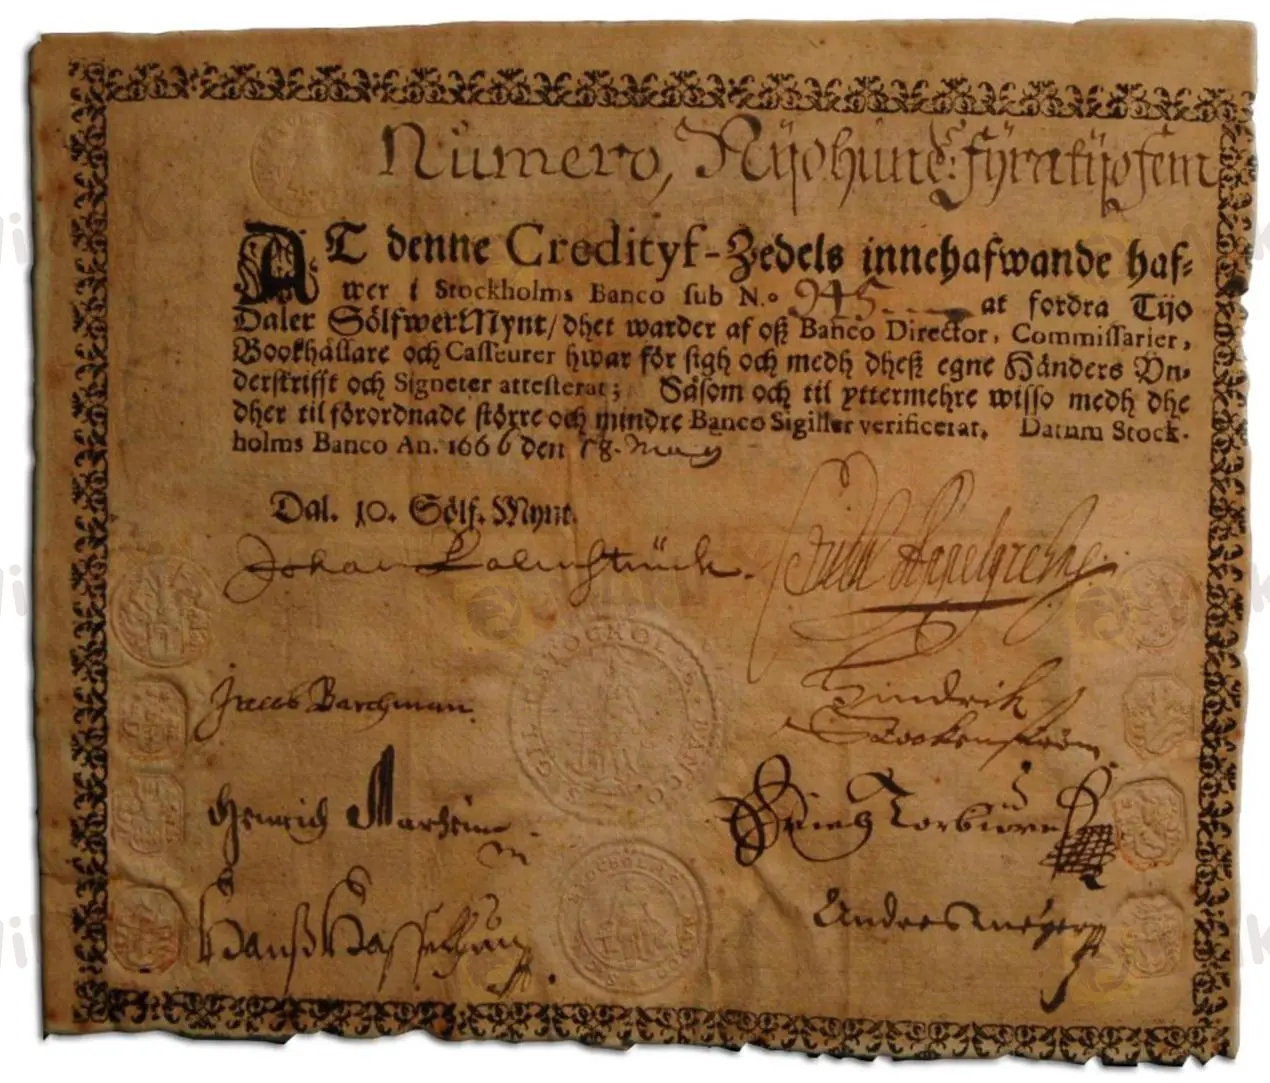 Numero, Nijohund: fyratijofem
AT denne Credityf-Zedels innehafwande haf-
wer i Stockholms Banco sub N.o 945 at fordra Tijo
Daler SölfwerMynt/ dhet warder af oß Banco Director, Commissarier,
Bookhållare och Casseurer hwar för sigh och medh dheß egne Händers Vn-
derskrifft och Signeter attesterat; Såsom och til yttermehre wisso medh dhe
dher til förordnade större och mindre Banco Sigiller verificerat. Datum Stock-
holms Banco An. 1666 den 18. May
Dal. 10. Sölf. Mynt.
Johan Palmstruck.
Jacob Barchman
Hindrik
Stockenström
Hinrich